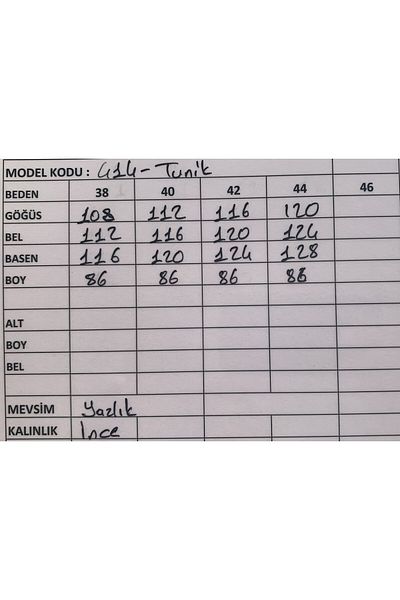 MODEL KODU : 414 - Tunik
BEDEN 38 40 42 44 46
GÖĞÜS 108 112 116 120
BEL 112 116 120 124
BASEN 116 120 124 128
BOY 86 86 86 86
ALT
BOY
BEL
MEVSİM Yazlık
KALINLIK İnce